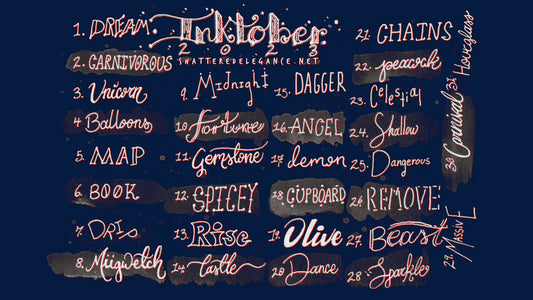 Inktober
2023
SHATTEREDELEGANCE.NET
1. DREAM
2. CARNIVOROUS
3. Unicorn
4. Balloons
5. MAP
6. BOOK
7. DRIP
8. Miigwetch
9. Midnight
10. Fortune
11. Gemstone
12. SPICEY
13. Rise
14. Castle
15. DAGGER
16. ANGEL
17. demon
18. CUPBOARD
19. Olive
20. Dance
21. CHAINS
22. peacock
23. Celestial
24. Shallow
25. Dangerous
26. REMOVE
27. Beast
28. Sparkle
29. MASSIVE
30. Carnival
31. Hourglass